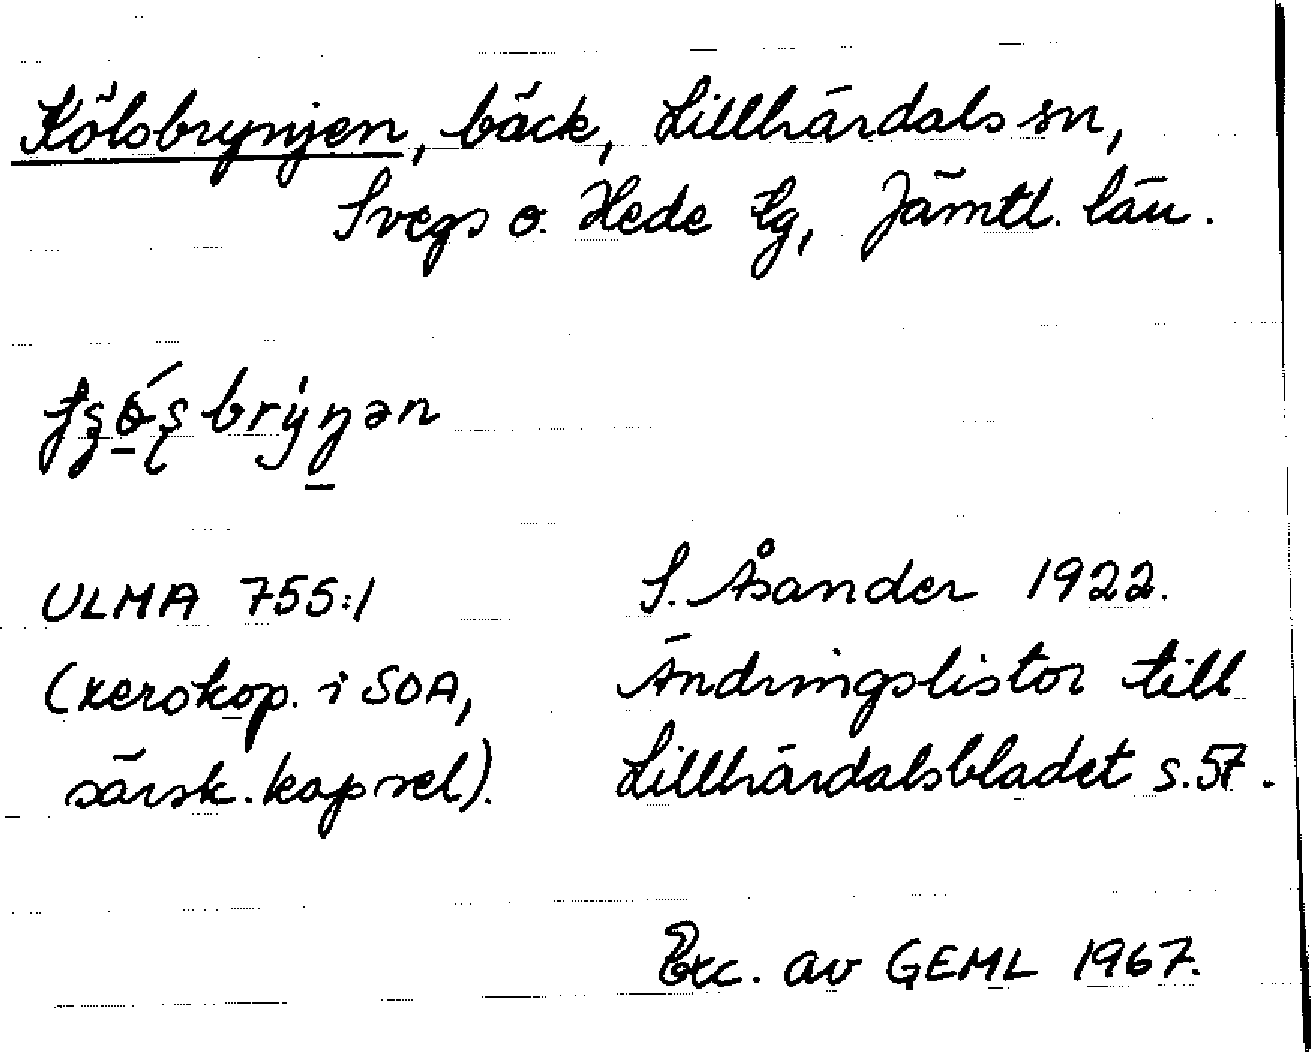 Kölsbrynjen, bäck, Lillhärdals sn,
Svegs o. Hede tg, Jämtl. län.
ULMA 755:1
(xerokop. i SOA,
särsk. kapsel).
S. Åsander 1922.
Ändringslistor till
Lillhärdalsbladet s. 57.
Exc. av GEML 1967.